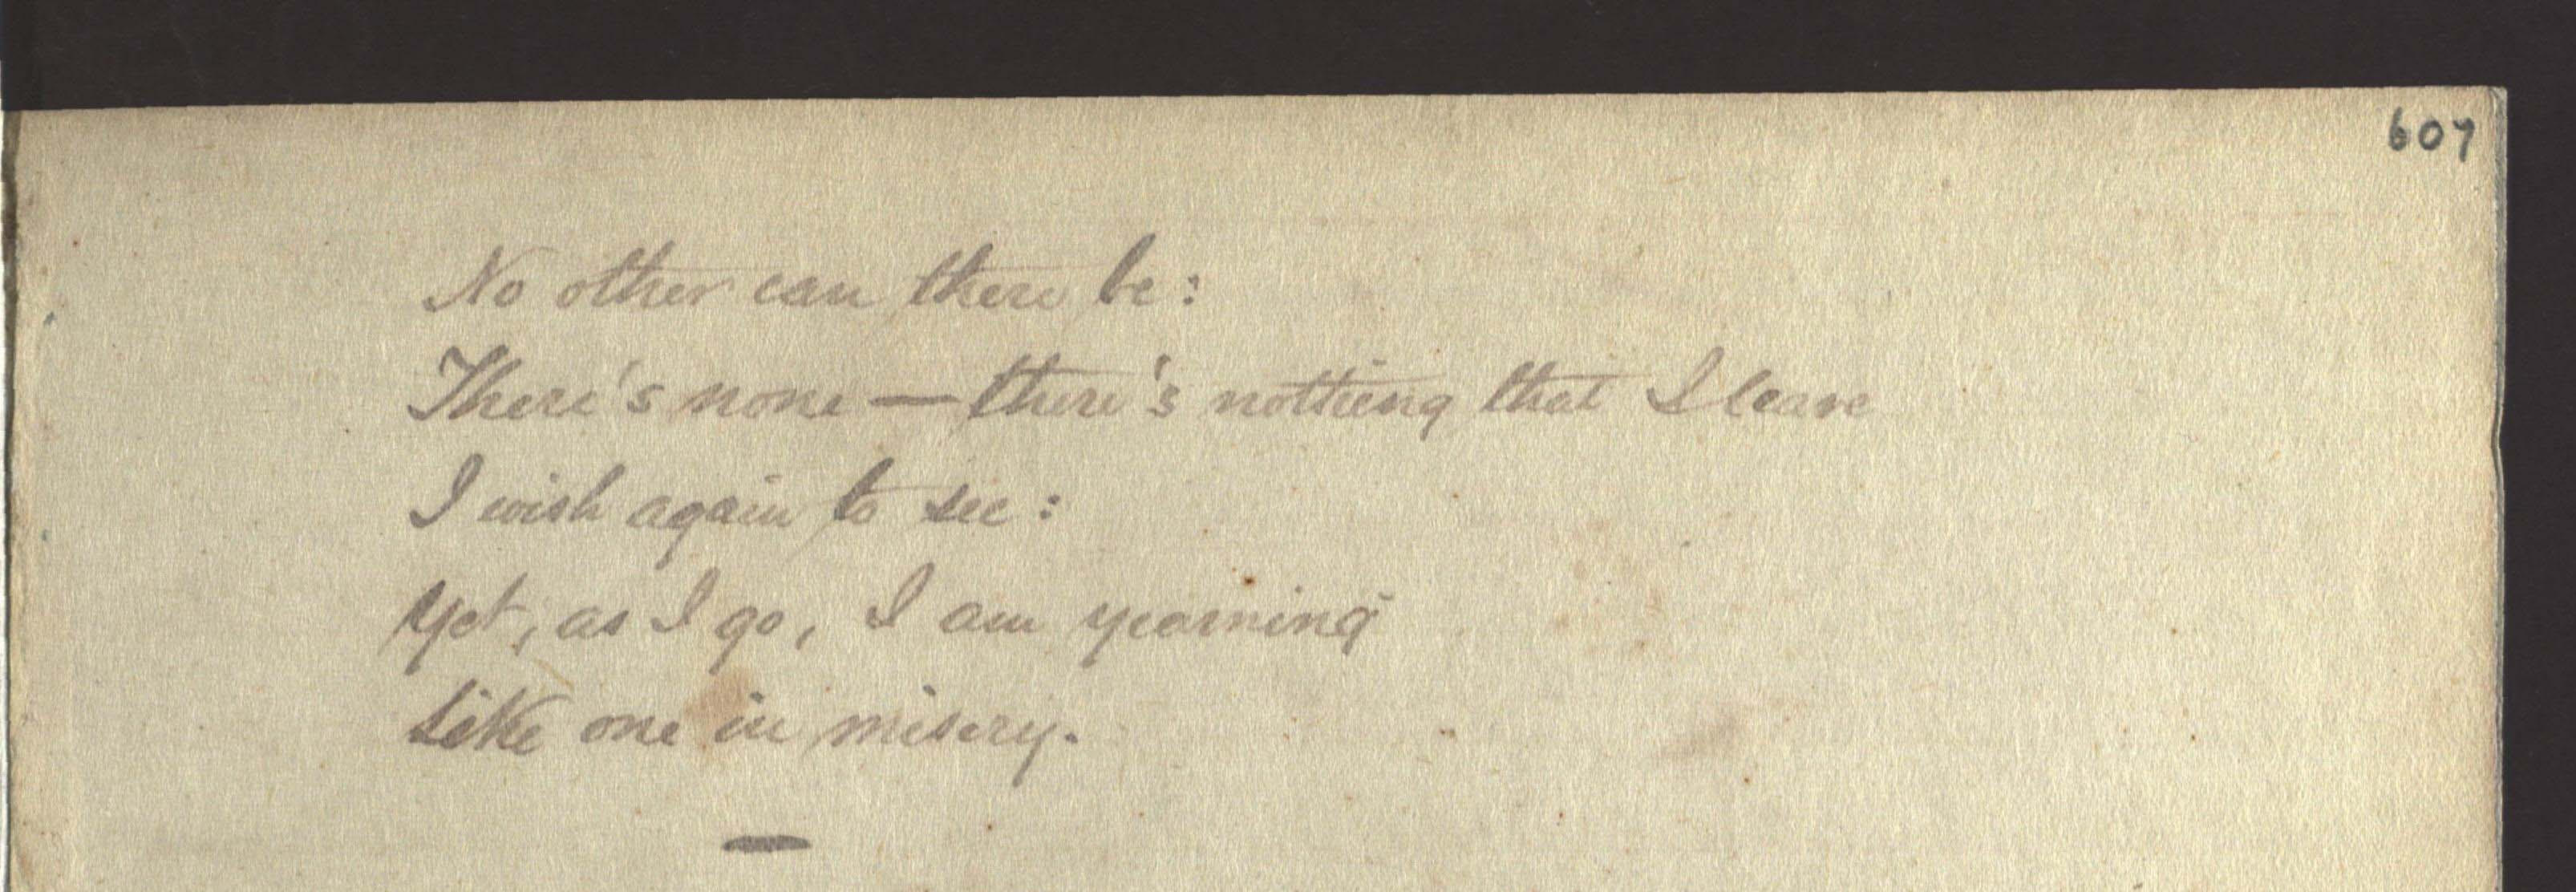 607
No other can there be:
There's none — there's nothing that I leave
I wish again to see:
Yet, as I go, I am yearning
Like one in misery.